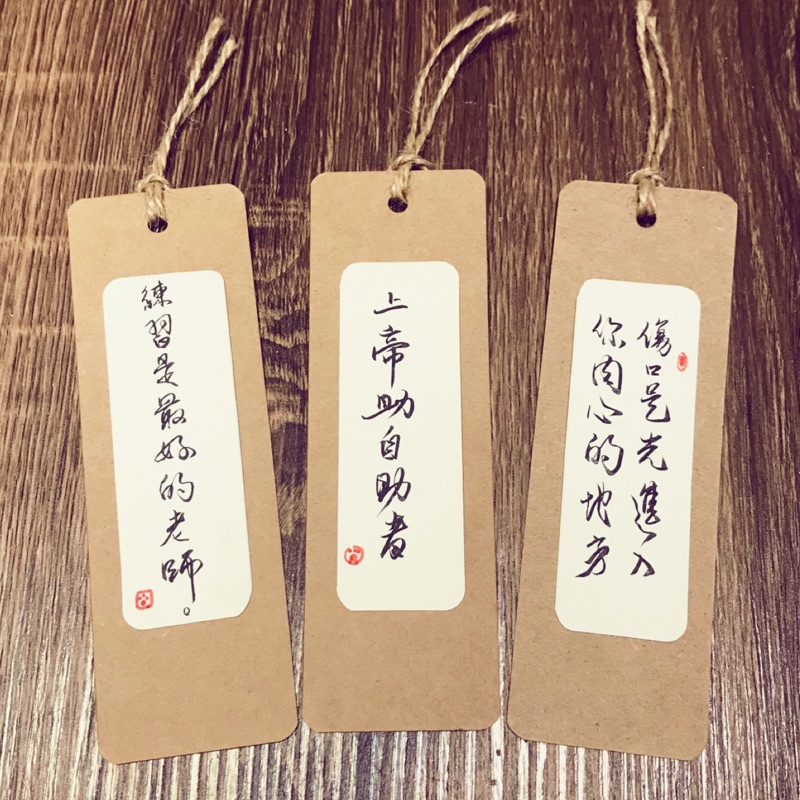 練習是最好的老師。
上帝助自助者
傷口是光進入
你內心的地方